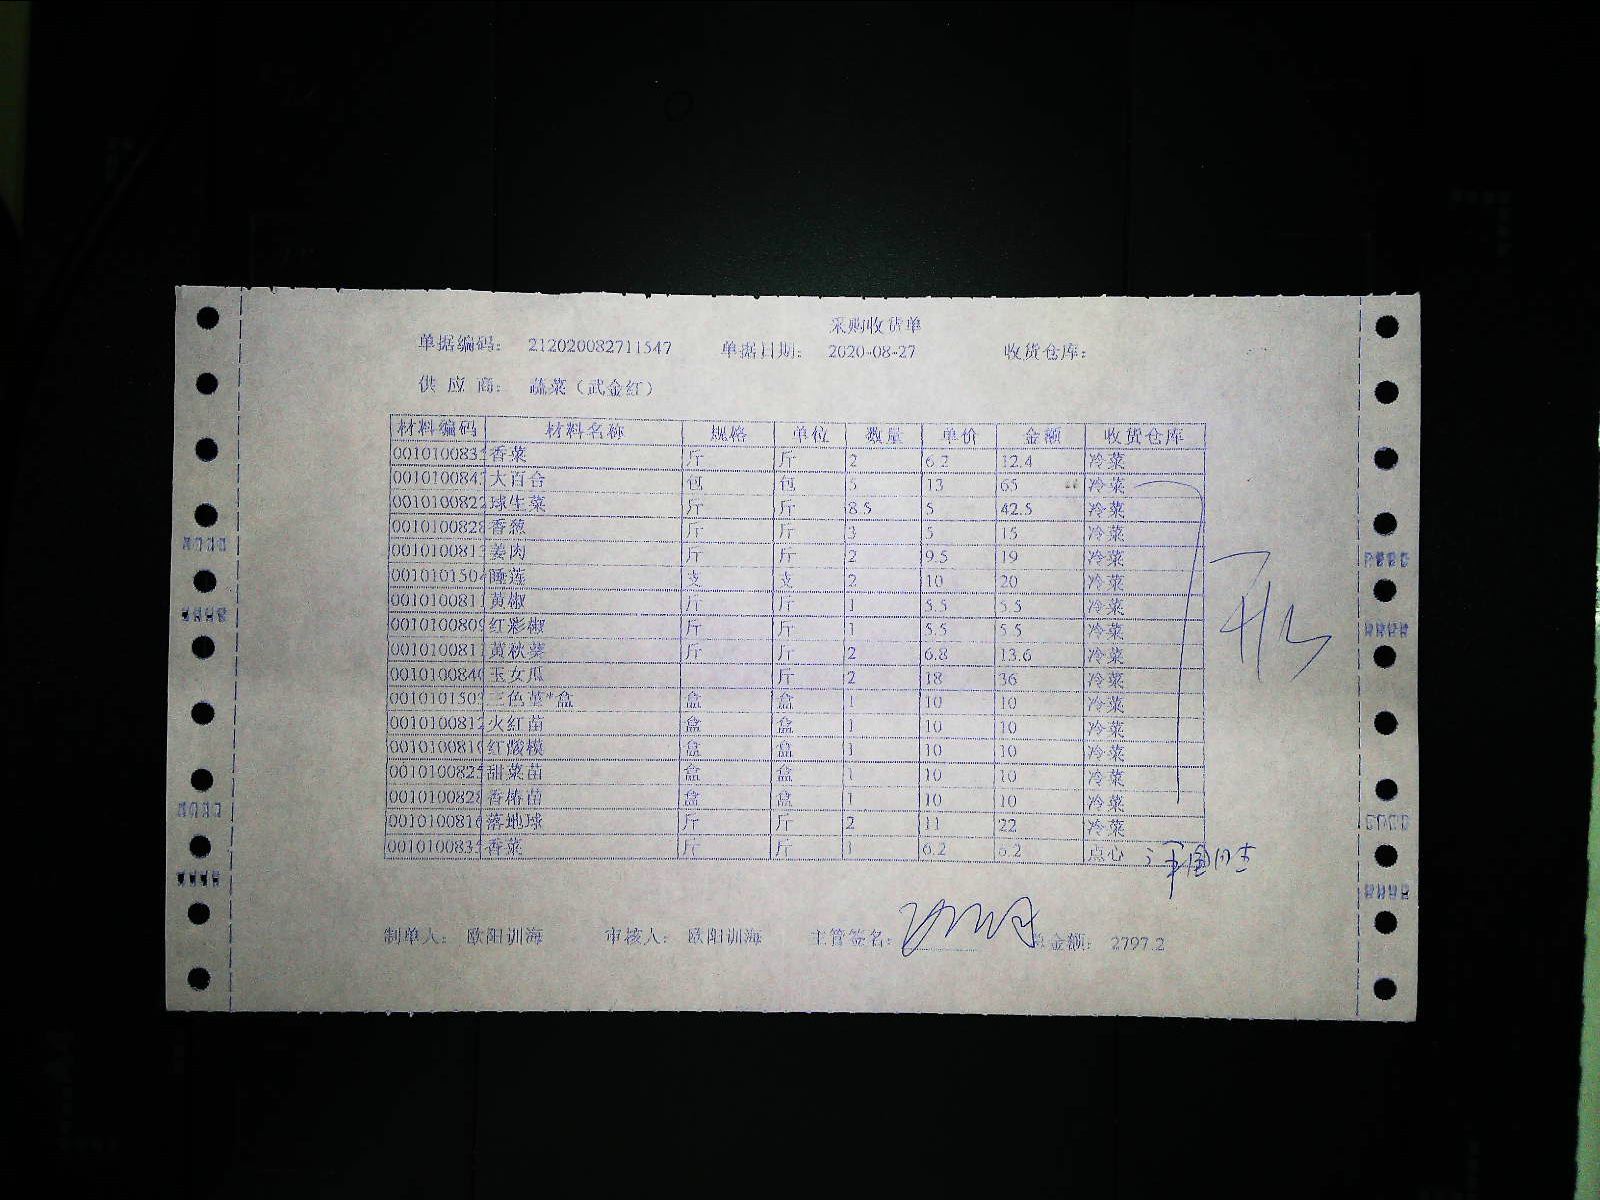 采购收货单
单据编码: 212020082711547 单据日期: 2020-08-27 收货仓库:
供 应 商: 蔬菜（武金红）
材料编码 材料名称 规格 单位 数量 单价 金额 收货仓库
0010100835 香菜 斤 斤 2 6.2 12.4 冷菜
001010084 大百合 包 包 5 13 65 冷菜
0010100822 球生菜 斤 斤 8.5 5 42.5 冷菜
0010100828 香葱 斤 斤 3 5 15 冷菜
001010081 姜肉 斤 斤 2 9.5 19 冷菜
0010101504 睡莲 支 支 2 10 20 冷菜
001010081 黄椒 斤 斤 1 5.5 5.5 冷菜
0010100809 红彩椒 斤 斤 1 5.5 5.5 冷菜
001010081 黄秋葵 斤 斤 2 6.8 13.6 冷菜
0010100840 玉女瓜 斤 2 18 36 冷菜
001010150 三色堇*盒 盒 盒 1 10 10 冷菜
0010100812 火红苗 盒 盒 1 10 10 冷菜
0010100810 红酸模 盒 盒 1 10 10 冷菜
0010100825 甜菜苗 盒 盒 1 10 10 冷菜
0010100828 香椿苗 盒 盒 1 10 10 冷菜
0010100816 落地球 斤 斤 2 11 22 冷菜
0010100835 香菜 斤 斤 1 6.2 6.2 点心
制单人: 欧阳训海 审核人: 欧阳训海 主管签名: 总金额: 2797.2